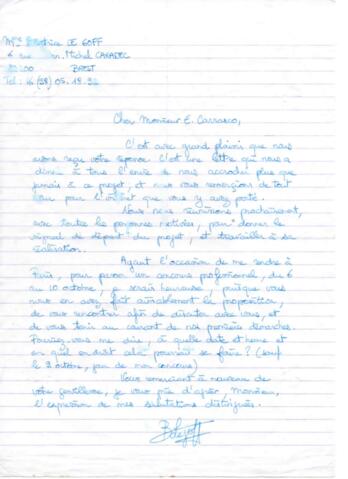 LE GOFF
6 rue Michel CARADEC
BREST
Tel : 16 (98) 05.18.
Cher Monsieur E. Carrasco,
C'est avec grand plaisir que nous
avons reçu votre réponse. C'est une lettre qui nous a
donné à tous l'envie de nous accrocher plus que
jamais à ce projet, et nous vous remercions de tout
pour l'intérêt que vous y avez porté.
Nous nous réunirons prochainement,
avec toutes les personnes motivées, pour "donner le
signal de départ" du projet, et travailler à sa
réalisation.
Ayant l'occasion de me rendre à
Paris, pour passer un concours professionnel, du 6
au 10 octobre, je serais heureuse, puisque vous
nous en avez fait aimablement la proposition,
de vous rencontrer afin de discuter avec vous, et
de vous tenir au courant de nos premières démarches.
Pouvez-vous me dire, à quelle date et heure et
en quel endroit cela pourrait se faire ? (sauf
le 9 octobre, jour de mon concours)
Vous remerciant à nouveau de
votre gentillesse, je vous prie d'agréer, Monsieur,
l'expression de mes salutations distinguées.
BLegoff